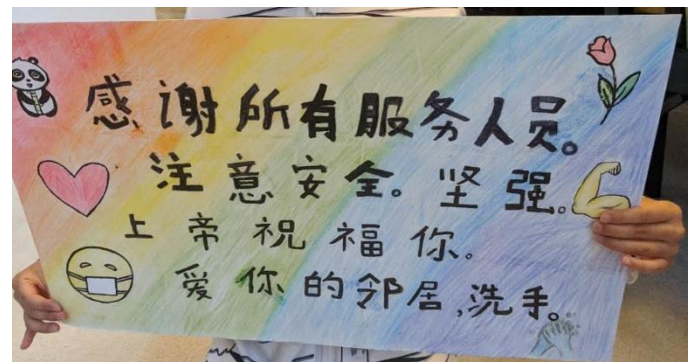 感谢所有服务人员。
注意安全。坚强。
上帝祝福你。
爱你的邻居,洗手。